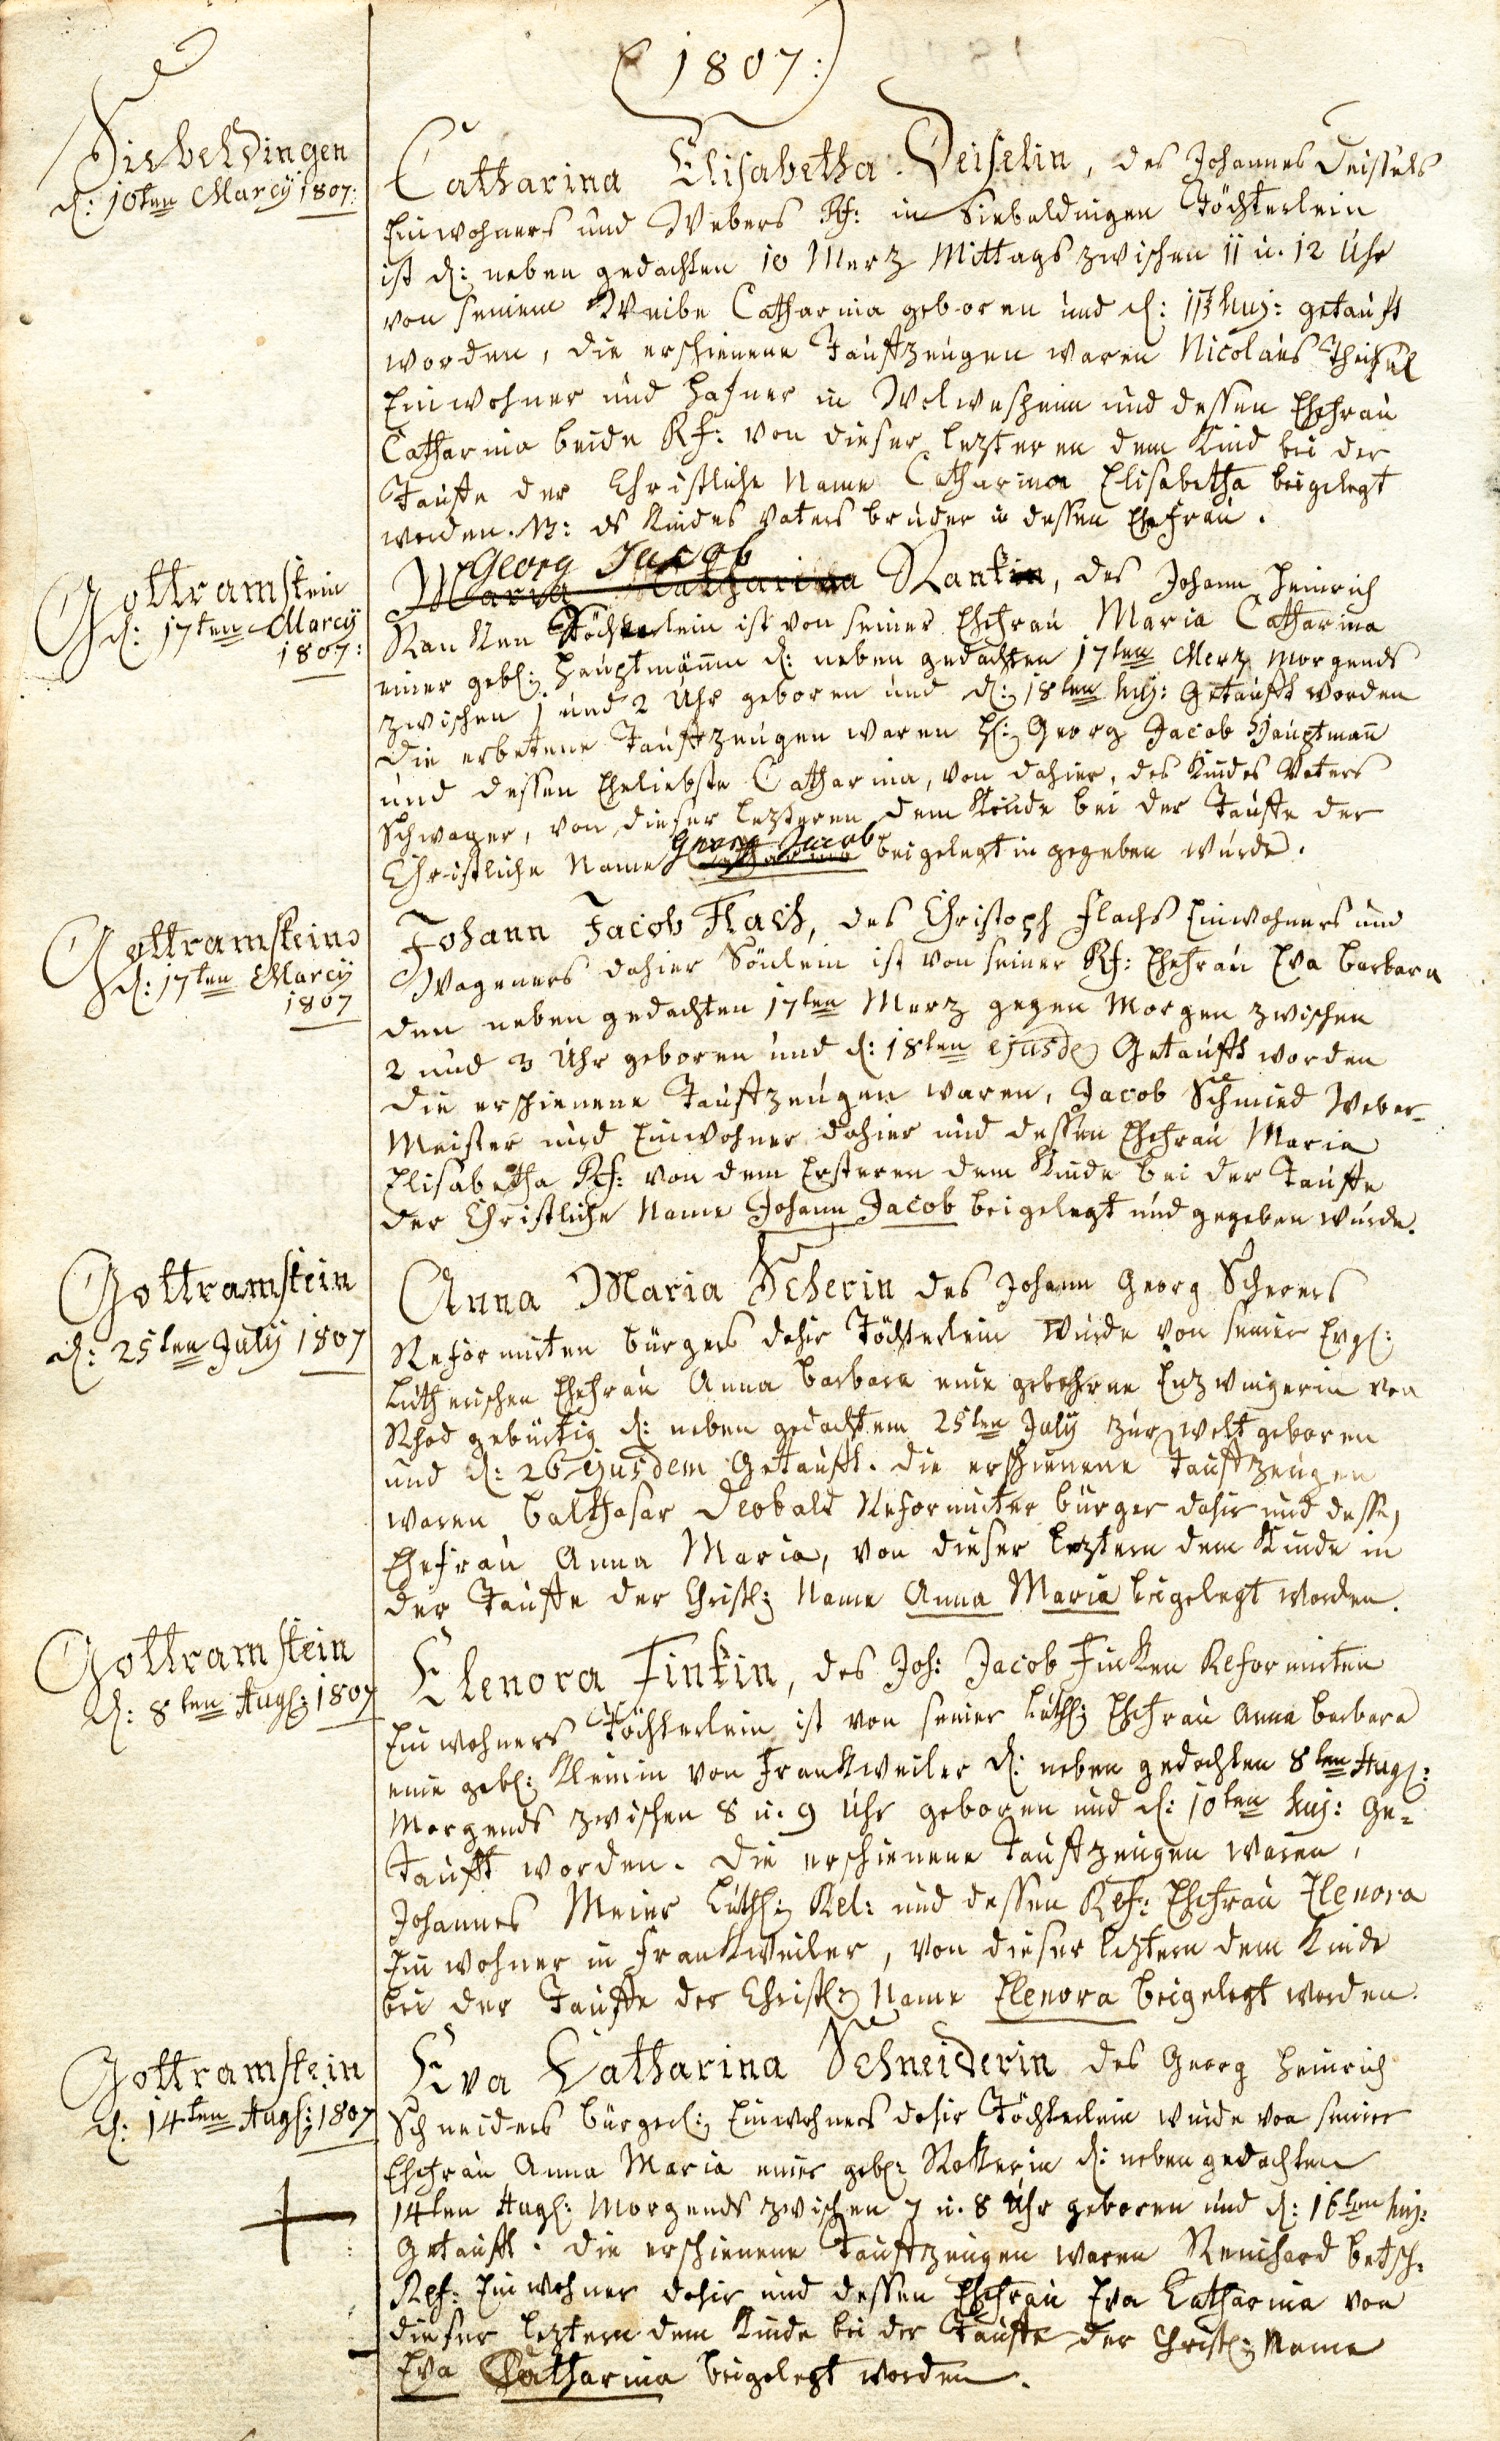 (1807:)
Siebeldingen
d: 10ten Marcy 1807:
Catharina Elisabetha Deiselin, des Johannes Deissels
Einwohners und Webers Rf: in Siebeldingen Töchterlein
ist d: neben gedachten 10 Merz Mittags zwischen 11 u. 12 Uhr
von seinem Weibe Catharina geboren und d: 13 huj: getauft
worden, die erschienene Taufzeugen waren Nicolaus Theisel
Einwohner und Hafner in Wolmesheim und dessen Ehefrau
Catharina beide Rf: von dieser lezteren dem Kind bei der
Tauffe der Christliche Name Catharina Elisabetha beigelegt
worden. NB: ds Kindes Vaters bruder u dessen Ehefrau.
Gottramstein
d: 17ten Marcy
1807:
Georg Jacob
Maria Catharina Rankin, des Johann Heinrich
Ranken Töchterlein ist von seiner Ehefrau Maria Catharina
einer geb: Hauptmännin d: neben gedachten 17ten Merz Morgends
zwischen 1 und 2 Uhr geboren und d: 18ten huj: Getaufft worden
die erbetene Taufzeugen waren H: Georg Jacob Hauptmañ
und dessen Eheliebste Catharina, von dahier, des Kindes Vaters
Schwager, von dieser lezteren dem Kinde bei der Tauffe der
Georg Jacob
Christliche Name Catharina beigelegt u gegeben wurde.
Gottramstein
d: 17ten Marcy
1807
Johann Jacob Flach, des Christoph Flachs Einwohners und
Wageners dahier Sönlein ist von seiner Rf: Ehefrau Eva Barbara
den neben gedachten 17ten Merz gegen Morgen zwischen
2 und 3 Uhr geboren und d: 18ten ejusde Getaufft worden
die erschienene Taufzeugen waren, Jacob Schmied Weber-
Meister und Einwohner dahier und dessen Ehefrau Maria
Elisabetha Rf: von dem Ersteren dem Kinde bei der Tauffe
der Christliche Name Johann Jacob beigelegt und gegeben wurde.
Gottramstein
d: 25ten July 1807
Anna Maria Scherin des Johann Georg Scherers
Reformirten bürgers dahir Töchterlein wurde von seiner Evgl:
Lutherischen Ehefrau Anna Barbara eine gebohrne Enzmingerin von
Rhod gebürtig d: neben gedachtem 25ten July zur Welt geboren
und d: 26 ejusdem Getaufft. die erschienene Taufzeugen
waren Balthasar Deobald Reformirter bürger dahir und desse
Ehefrau Anna Maria, von dieser leztern dem Kinde in
der Tauffe der Christl: Name Anna Maria beigelegt worden.
Gottramstein
d: 8ten Aug: 1807
Elenora Finkin, des Joh: Jacob Finken Reformirten
Einwohners Töchterlein ist von seiner Luth: Ehefrau Anna Barbara
eine geb: Kleinin von Frankweiler d: neben gedachten 8ten Aug:
Morgends zwischen 8 u. 9 Uhr geboren und d: 10ten huj: Ge-
taufft worden. die erschienene Taufzeugen waren,
Johannes Meier Luth: Rel: und dessen Ref: Ehefrau Elenora
Einwohner in Frankweiler, von dieser leztern dem Kinde
bei der Tauffe der Christl: Name Elenora beigelegt worden.
Gottramstein
d: 14ten Aug: 1807
Eva Catharina Schneiderin des Georg Heinrich
Schneiders bürgerl: Einwohners dahir Töchterlein wurde von seiner
Ehefrau Anna Maria einer geb: Rokerin d: neben gedachten
14ten Aug: Morgends zwischen 7 u. 8 Uhr geboren und d: 16ten huj:
Getaufft. die erschienene Taufzeugen waren Reinhard Betsch.
Ref: Einwohner dahir und dessen Ehefrau Eva Catharina von
dieser leztern dem Kinde bei der Tauffe der Christl: Name
Eva Catharina beigelegt worden.